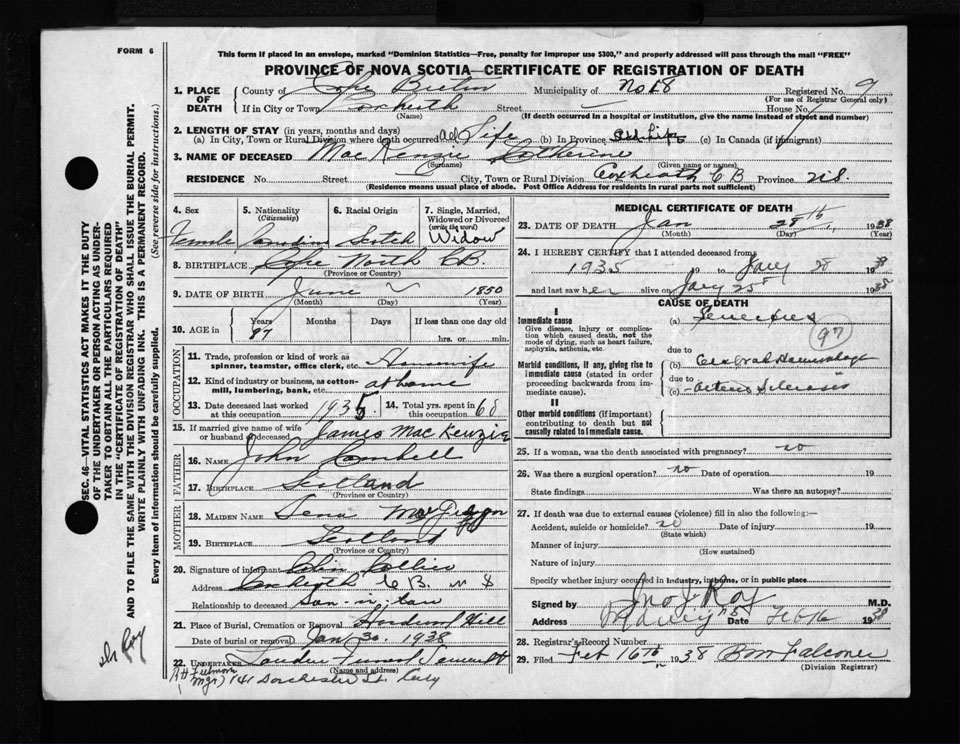 FORM 6
This form if placed in an envelope, marked "Dominion Statistics—Free, penalty for improper use $300," and properly addressed will pass through the mail "FREE"
PROVINCE OF NOVA SCOTIA—CERTIFICATE OF REGISTRATION OF DEATH
1. PLACE OF DEATH County of Cape Breton Municipality of No 18 Registered No. 9
(For use of Registrar General only)
If in City or Town Coxheath Street House No.
(Name) (If death occurred in a hospital or institution, give the name instead of street and number)
2. LENGTH OF STAY (in years, months and days)
(a) In City, Town or Rural Division where death occurred all Life (b) In Province all Life (c) In Canada (if immigrant)
3. NAME OF DECEASED MacKenzie Catherine
(Surname) (Given name or names)
RESIDENCE No. Street City, Town or Rural Division Coxheath C B Province N.S.
(Residence means usual place of abode. Post Office Address for residents in rural parts not sufficient)
4. Sex Female
5. Nationality (Citizenship) Canadian
6. Racial Origin Scotch
7. Single, Married, Widowed or Divorced (write the word) Widow
8. BIRTHPLACE Cape North CB
(Province or Country)
9. DATE OF BIRTH June 1850
(Month) (Day) (Year)
10. AGE in Years 87 Months Days If less than one day old
hrs. or min.
OCCUPATION
11. Trade, profession or kind of work as spinner, teamster, office clerk, etc. Housewife
12. Kind of industry or business, as cotton-mill, lumbering, bank, etc. at home
13. Date deceased last worked at this occupation 1935
14. Total yrs. spent in this occupation 68
15. If married give name of wife or husband of deceased James MacKenzie
FATHER
16. NAME John
17. BIRTHPLACE Scotland
(Province or Country)
MOTHER
18. MAIDEN NAME
19. BIRTHPLACE Scotland
(Province or Country)
20. Signature of informant John Collier
Address Coxheath C B. N S
Relationship to deceased Son-in-law
21. Place of Burial, Cremation or Removal Hill
Date of burial or removal Jan 30 1938
22. UNDERTAKER
(Name and Address)
Mgr) 141 Dorchester St. City
MEDICAL CERTIFICATE OF DEATH
23. DATE OF DEATH Jan 28th 1938
(Month) (Day) (Year)
24. I HEREBY CERTIFY that I attended deceased from
1935 19 to Jany 28 1938
and last saw her alive on Jany 25th 1938
CAUSE OF DEATH
I
Immediate cause (a) Senectus
97
Give disease, injury or complication which caused death, not the mode of dying, such as heart failure, asphyxia, asthenia, etc.
due to
Morbid conditions, if any, giving rise to immediate cause (stated in order proceeding backwards from immediate cause). (b) Cerebral Haemorrhage
due to
(c) Arterio Sclerosis
II
Other morbid conditions (if important) contributing to death but not causally related to immediate cause.
25. If a woman, was the death associated with pregnancy? no
26. Was there a surgical operation? no Date of operation 19
State findings Was there an autopsy?
27. If death was due to external causes (violence) fill in also the following:—
Accident, suicide or homicide? no Date of injury 19
(State which)
Manner of injury
(How sustained)
Nature of injury
Specify whether injury occurred in industry, in home, or in public place
Signed by Jno J Roy M.D.
Address Sydney NS Date Feb 16 1938
28. Registrar's Record Number
29. Filed Feb 16th 1938 Falconer
(Division Registrar)
SEC. 46—VITAL STATISTICS ACT MAKES IT THE DUTY
OF THE UNDERTAKER OR PERSON ACTING AS UNDER-
TAKER TO OBTAIN ALL THE PARTICULARS REQUIRED
IN THE "CERTIFICATE OF REGISTRATION OF DEATH"
AND TO FILE THE SAME WITH THE DIVISION REGISTRAR WHO SHALL ISSUE THE BURIAL PERMIT.
WRITE PLAINLY WITH UNFADING INK. THIS IS A PERMANENT RECORD.
Every item of information should be carefully supplied. (See reverse side for instructions.)
Dr Roy